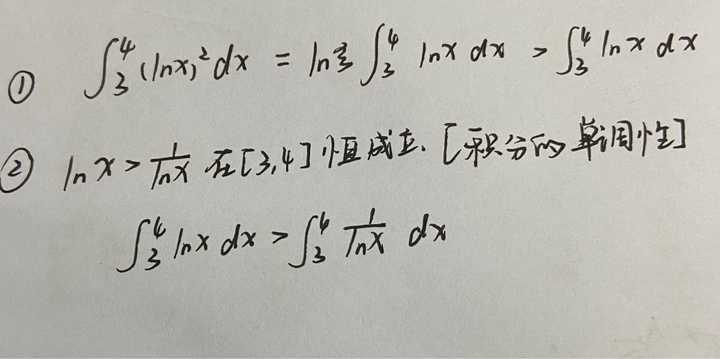 ① ∫₃⁴ (lnx)² dx = ln ξ ∫₃⁴ lnx dx > ∫₃⁴ ln x dx
② ln x > 1/lnx 在[3,4]恒成立. [积分的单调性]
∫₃⁴ lnx dx > ∫₃⁴ 1/lnx dx